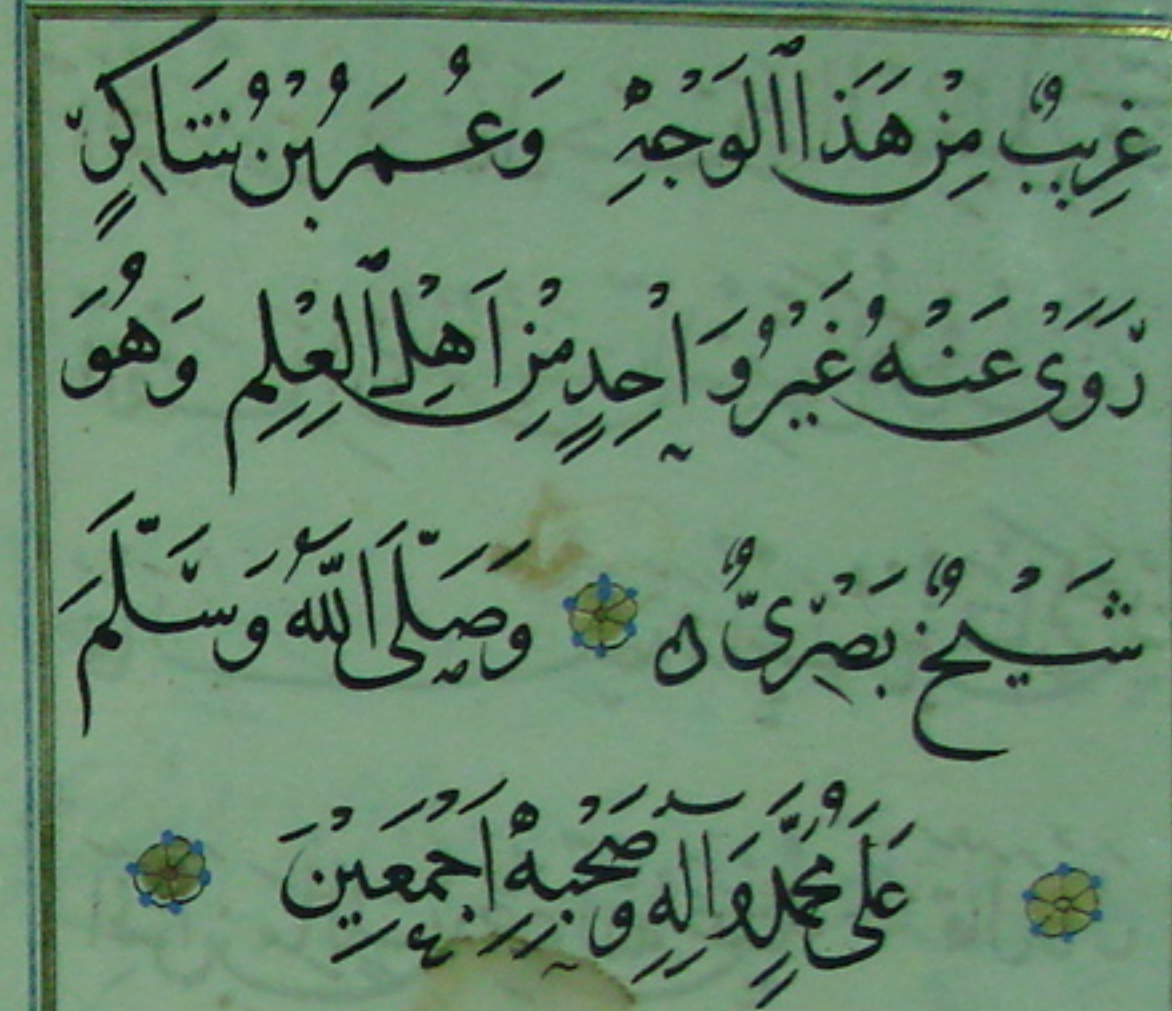 غَرِيبٌ مِنْ هَذَا الْوَجْهِ وَعُمَرُ بْنُ شَاكِرٍ
رَوَى عَنْهُ غَيْرُ وَاحِدٍ مِنْ اَهْلِ الْعِلْمِ وَهُوَ
شَيْخٌ بَصْرِىٌّ ه وَصَلَّى اللّٰهُ وَسَلَّمَ
عَلَى مُحَمَّدٍ وَآلِهِ وَصَحْبِهِ اَجْمَعِينَ